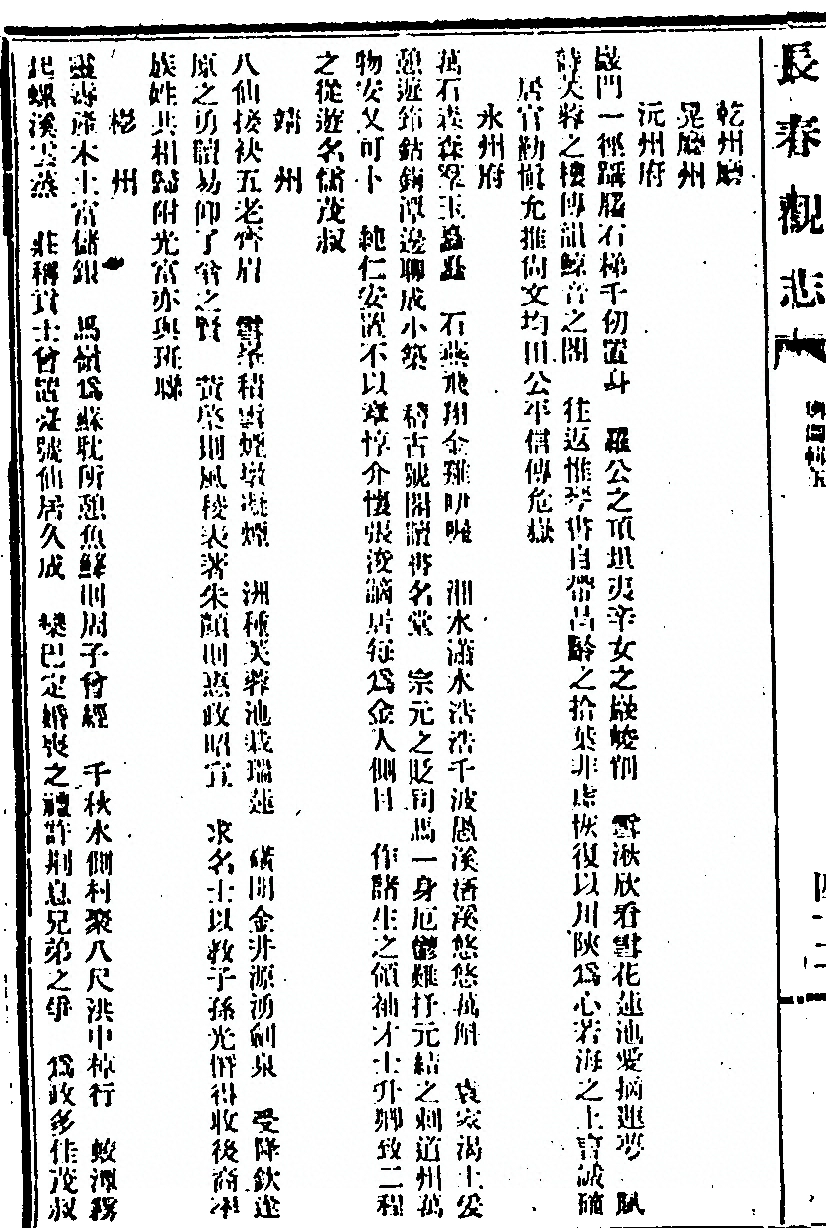 長春觀志
乾州廳
晃廳州
沅州府
門一徑躡磴石梯千仞置身 羅公之頂坦夷辛女之巖峻削 雪湫欣看雪花蓮池愛摘蓮 賦
詩芙蓉之樓傳訊鯨音之閣 往返惟琴書自帶昌齡之拾葉非虛恢復以川陝為心若海之上言誠
居官勤慎允推尚文均田公平信傳危嶽
永州府
萬石森森翠玉矗矗 石燕飛翔金雞叨 湘水瀟水浩浩千波愚溪浯溪悠悠萬斛 袁家渴上爰
憩遊筇鈷鉧潭邊聊成小築 稽古號閣讀書名堂 宗元之貶司馬一身厄鬱難抒元結之刺道州萬
物安又可卜 純仁安置不以章惇介懷張浚謫居每為金人側目 作諸生之領袖才士升鄉致二程
之從遊名儒茂叔
靖州
八仙接袂五老齊眉 雪峯積雪煙墩凝煙 洲種芙蓉池栽瑞蓮 開金井源湧劍泉 受降欽逵
原之勇讀易仰了翁之賢 黃榮則風稜表著朱顏則惠政昭宣 求名士以教子孫光僭得收後商
族姓共相歸附光富亦與班聯
郴州
靈壽產木土富儲銀 馬嶺為蘇耽所憩魚鮮則周子曾經 千秋水側村聚八尺洪中棹行 蛟潭霧
起螺溪雲蒸 莊稱貢士會 號仙居久成 欒巴定婚喪之禮許荆息兄弟之爭 為政多佳茂叔